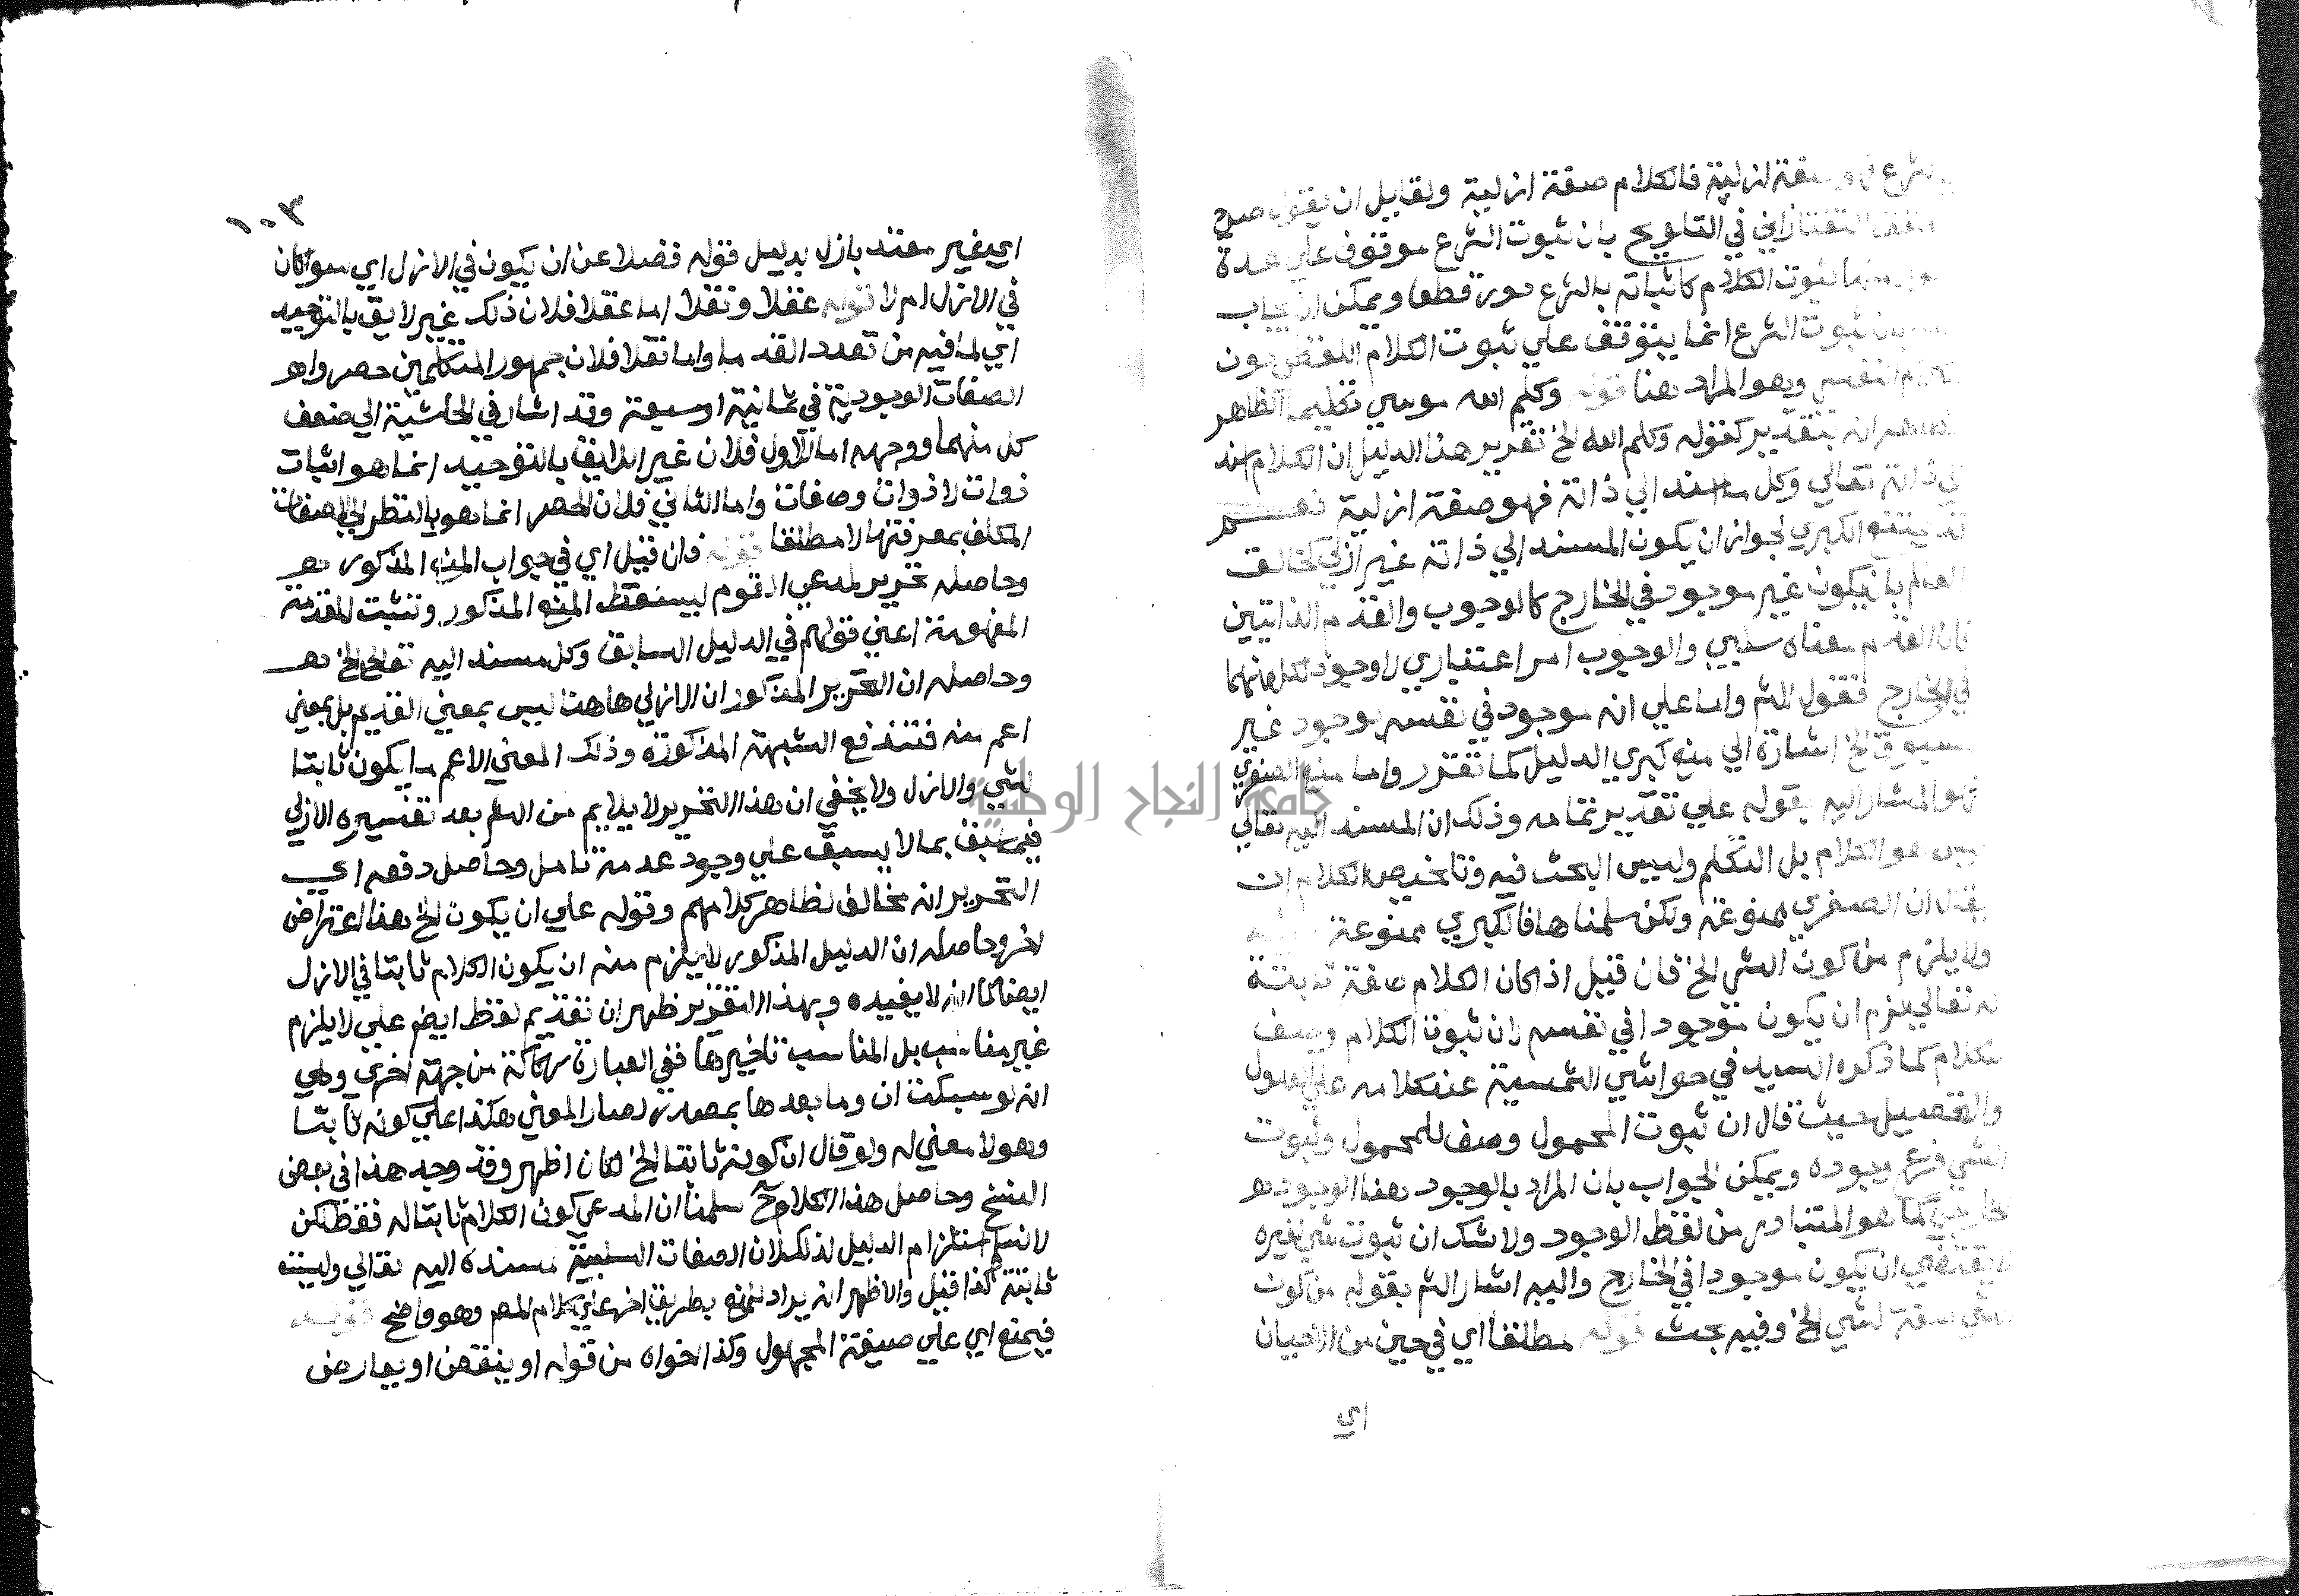 صفة ازلية فالكلام صفة ازلية ولقايل ان يقول صرح
التفتازاني في التلويح بان ثبوت الشرع موقوف علي عدة
منها ثبوت الكلام كاثباته بالشرع دور قطعا ويمكن ان يجاب
بان ثبوت الشرع انما يتوقف علي ثبوت الكلام اللفظي دون
النفسي وهو المراد هنا قوله وكلم الله موسي تكليما الظاهر
انه بتقدير كقوله وكلم الله الخ تقرير هذا الدليل ان الكلام اسند
الي ذاته تعالي وكل ما اسند الي ذاته فهو صفة ازلية
قد يمنع الكبري لجواز ان يكون المسند الي ذاته غير ازلي كخالق
العالم بان يكون غير موجود في الخارج كالوجوب والقدم الذاتيين
فان القدم معناه سلبي والوجوب امر اعتباري لا وجود لكل منهما
في الخارج فقول الشم واما علي انه موجود في نفسه بوجود غير
مسبوق الخ اشارة الي منع كبري الدليل كما تقرر واما منع الصغري
فهو المشار اليه بقوله علي تقدير تمامه وذلك ان المسند اليه تعالي
ليس هو الكلام بل التكلم وليس البحث فيه وتلخيص الكلام ان
يقال ان الصغري ممنوعة ولكن سلمناها فالكبري ممنوعة
ولا يلزم من كون الشي الخ فان قيل اذا كان الكلام صفة ثابتة
له تعالي يلزم ان يكون موجودا في نفسه لان ثبوت الكلام وصف
للكلام كما ذكره السيد في حواشي الشمسية عند كلامه علي العدول
والتحصيل حيث قال ان ثبوت المحمول وصف للمحمول وثبوت
الشي فرع وجوده ويمكن الجواب بان المراد بالوجود هنا الوجود
الخارجي كما هو المتبادر من لفظ الوجود ولا شك ان ثبوت شي لغيره
لا يقتضي ان يكون موجودا في الخارج واليه اشار الشم بقوله من كون
الشي صفة لشي الخ وفيه بحث قوله مطلقا اي في حين من الاحيان
اي
١٠٣
اي بغير معتد بازل بدليل قوله فضلا عن ان يكون في الازل اي سوا كان
في الازل ام لا قوله عقلا ونقلا اما عقلا فلان ذلك غير لايق بالتوحيد
اي لما فيه من تعدد القدما واما نقلا فلان جمهور المتكلمين حصروا
الصفات الوجودية في ثمانية او سبعة وقد اشار في الحاشية الي ضعف
كل منهما ووجهه اما الاول فلان غير اللايق بالتوحيد انما هو اثبات
ذوات لا ذوات وصفات واما الثاني فلان الحصر انما هو بالنظر الي الصفات
المكلف بمعرفتها لا مطلقا قوله فان قيل اي في جواب المنع المذكور
وحاصله تحرير لمدعي القوم ليسقط المنع المذكور وتثبت المقدمة
المفهومة اعني قولهم في الدليل السابق وكل مسند اليه تعالي الخ
وحاصله ان التحرير المذكور ان الازلي هاهنا ليس بمعني القديم بل بمعني
اعم منه فتندفع الشبهة المذكورة وذلك المعني الاعم ما يكون ثابتا
لشي والازل ولا يخفي ان هذا التحرير لا يلايم من الشم بعد تفسيره الازلي
فيما سبق بما لا يسبق علي وجود عدمه تامل وحاصل دفعه اي
التحرير انه مخالف لظاهر كلامهم وقوله علي ان يكون الخ هذا اعتراض
اخر وحاصله ان الدليل المذكور لا يلزم منه ان يكون الكلام ثابتا في الازل
ايضا كما انه لا يفيده وبهذا التقرير ظهر ان تقديم لفظ ايض علي لا يلزم
غير مناسب بل المناسب تاخيرها ففي العبارة ركاكة من جهة اخري وهي
انه لو سبكت ان وما بعدها بمصدر لصار المعني هكذا علي كونه ثابتا
وهو لا معني له ولو قال ان كونه ثابتا الخ لكان اظهر وقد وجد هذا في بعض
النسخ وحاصل هذا الكلام ح سلمنا ان المدعي كون الكلام ثابتا له فقط لكن
لا نسلم استلزام الدليل لذلك لان الصفات السلبية مسنده اليه تعالي وليست
ثابتة كذا قيل والاظهر انه يراد المنع بطريق اخر علي كلام المصم وهو واضح قوله
فيمنع اي علي صيغة المجهول وكذا اخواه من قوله او ينقض او يعارض